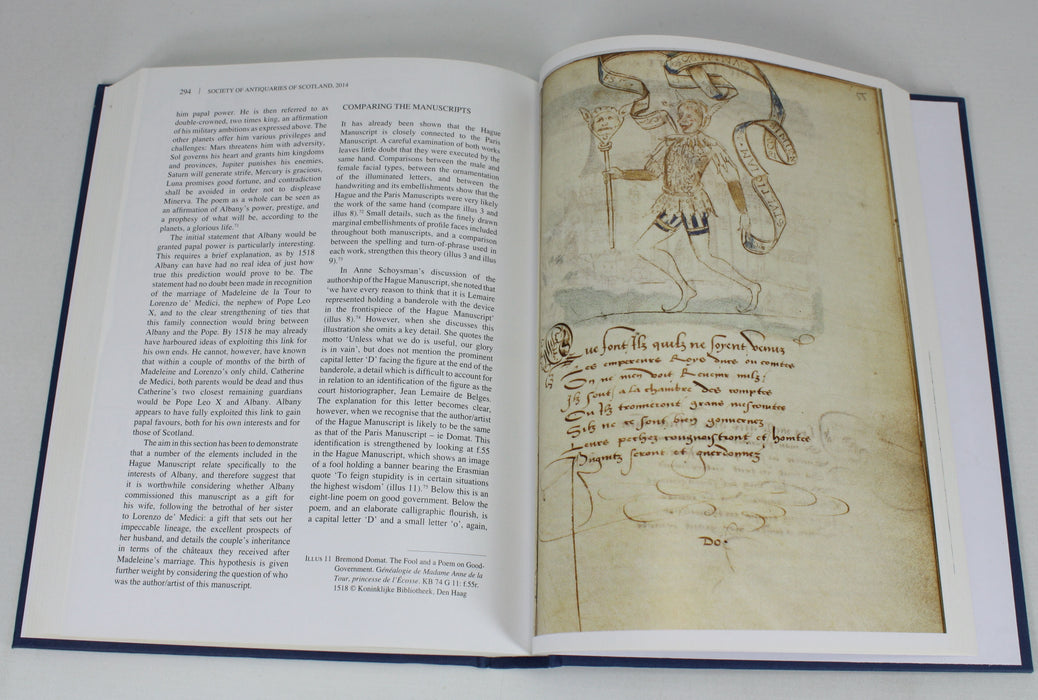 294 | SOCIETY OF ANTIQUARIES OF SCOTLAND, 2014
him papal power. He is then referred to as
double-crowned, two times king, an affirmation
of his military ambitions as expressed above. The
other planets offer him various privileges and
challenges: Mars threatens him with adversity,
Sol governs his heart and grants him kingdoms
and provinces, Jupiter punishes his enemies,
Saturn will generate strife, Mercury is gracious,
Luna promises good fortune, and contradiction
shall be avoided in order not to displease
Minerva. The poem as a whole can be seen as
an affirmation of Albany's power, prestige, and
a prophesy of what will be, according to the
planets, a glorious life.⁷¹
The initial statement that Albany would be
granted papal power is particularly interesting.
This requires a brief explanation, as by 1518
Albany can have had no real idea of just how
true this prediction would prove to be. The
statement had no doubt been made in recognition
of the marriage of Madeleine de la Tour to
Lorenzo de' Medici, the nephew of Pope Leo
X, and to the clear strengthening of ties that
this family connection would bring between
Albany and the Pope. By 1518 he may already
have harboured ideas of exploiting this link for
his own ends. He cannot, however, have known
that within a couple of months of the birth of
Madeleine and Lorenzo's only child, Catherine
de Medici, both parents would be dead and thus
Catherine's two closest remaining guardians
would be Pope Leo X and Albany. Albany
appears to have fully exploited this link to gain
papal favours, both for his own interests and for
those of Scotland.
The aim in this section has been to demonstrate
that a number of the elements included in the
Hague Manuscript relate specifically to the
interests of Albany, and therefore suggest that
it is worthwhile considering whether Albany
commissioned this manuscript as a gift for
his wife, following the betrothal of her sister
to Lorenzo de' Medici: a gift that sets out her
impeccable lineage, the excellent prospects of
her husband, and details the couple's inheritance
in terms of the châteaux they received after
Madeleine's marriage. This hypothesis is given
further weight by considering the question of who
was the author/artist of this manuscript.
COMPARING THE MANUSCRIPTS
It has already been shown that the Hague
Manuscript is closely connected to the Paris
Manuscript. A careful examination of both works
leaves little doubt that they were executed by the
same hand. Comparisons between the male and
female facial types, between the ornamentation
of the illuminated letters, and between the
handwriting and its embellishments show that the
Hague and the Paris Manuscripts were very likely
the work of the same hand (compare illus 3 and
illus 8).⁷² Small details, such as the finely drawn
marginal embellishments of profile faces included
throughout both manuscripts, and a comparison
between the spelling and turn-of-phrase used in
each work, strengthen this theory (illus 3 and illus
9).⁷³
In Anne Schoysman's discussion of the
authorship of the Hague Manuscript, she noted that
'we have every reason to think that it is Lemaire
represented holding a banderole with the device
in the frontispiece of the Hague Manuscript'
(illus 8).⁷⁴ However, when she discusses this
illustration she omits a key detail. She quotes the
motto 'Unless what we do is useful, our glory
is in vain', but does not mention the prominent
capital letter 'D' facing the figure at the end of the
banderole, a detail which is difficult to account for
in relation to an identification of the figure as the
court historiographer, Jean Lemaire de Belges.
The explanation for this letter becomes clear,
however, when we recognise that the author/artist
of the Hague Manuscript is likely to be the same
as that of the Paris Manuscript – ie Domat. This
identification is strengthened by looking at f.55
in the Hague Manuscript, which shows an image
of a fool holding a banner bearing the Erasmian
quote 'To feign stupidity is in certain situations
the highest wisdom' (illus 11).⁷⁵ Below this is an
eight-line poem on good government. Below the
poem, and an elaborate calligraphic flourish, is
a capital letter 'D' and a small letter 'o', again,
ILLUS 11 Bremond Domat. The Fool and a Poem on Good-
Government. Généalogie de Madame Anne de la
Tour, princesse de l'Écosse. KB 74 G 11: f.55r.
1518 © Koninklijke Bibliotheek, Den Haag
Que sont Ilz quilz ne soyent venuz
Ces empereurs Roys ducz ou contes
On ne men voit Revenir nulz
Ilz sont a la chambre des comptes
Ou Ilz trouveront grans mescomptes
Silz ne se sont bien gouvernez
Leurs pechez congnoistront et hontes
Pugniz seront et guerdonnez
Do.